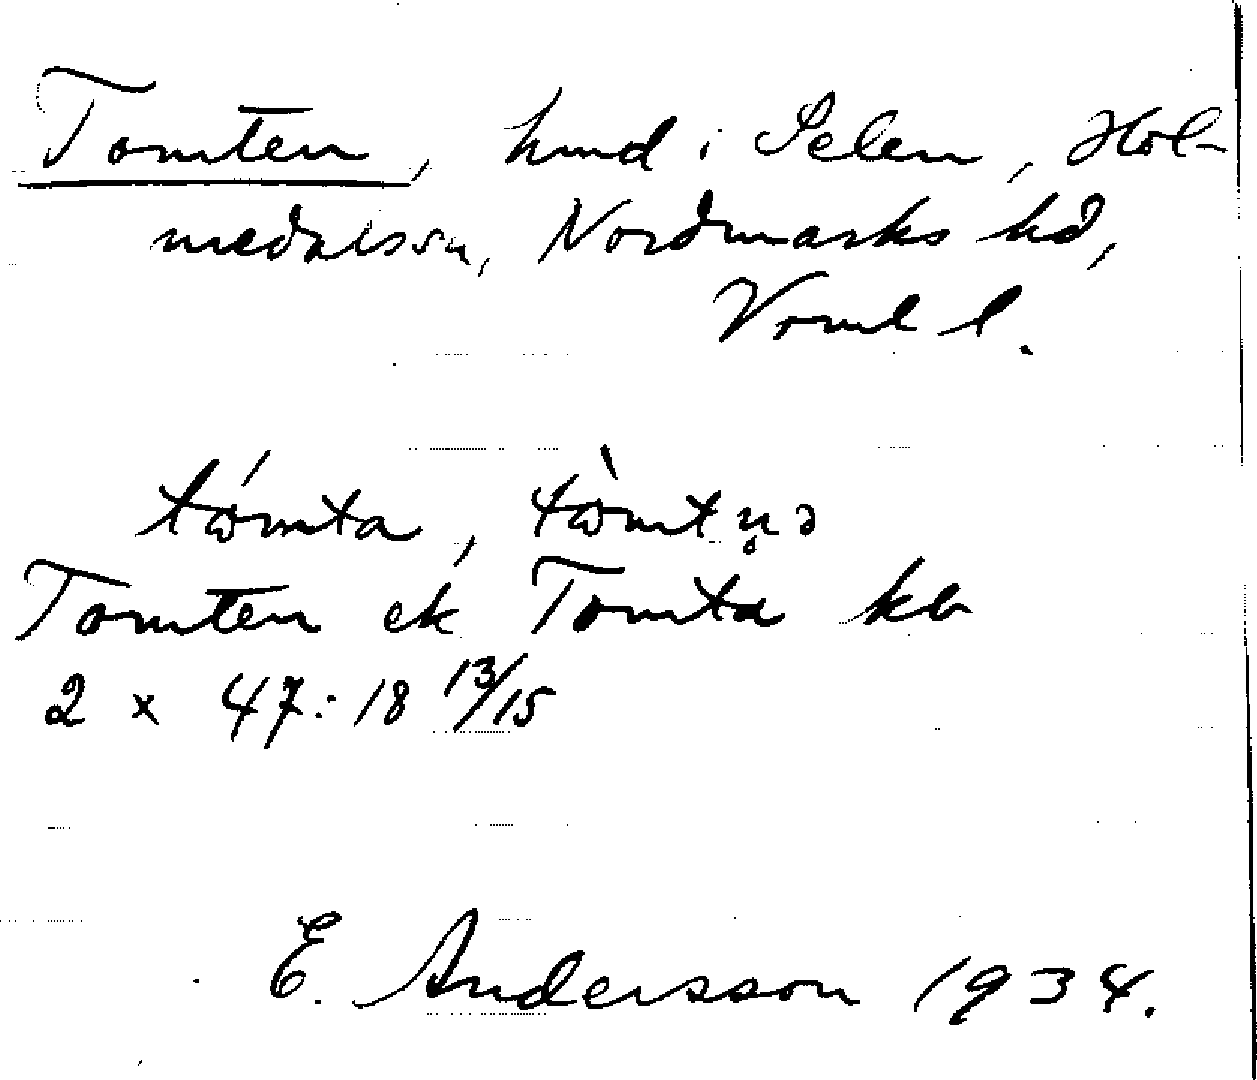 Tomten, hmd i Selen, Hol-
medals sn, Nordmarks hd,
Vrml l.
tómta, tòmtn̥ə
Tomten ek Tomta kb
2 x 47:18 13/15
E. Andersson 1934.